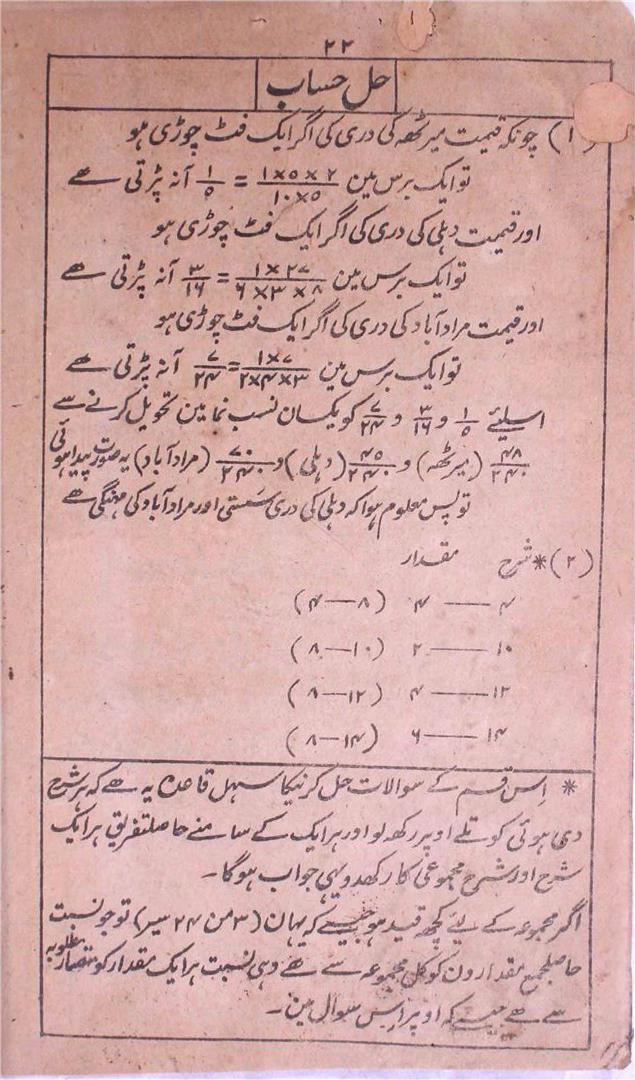 ۲۲
حل حساب
(۱) چونکہ قیمت میرٹھ کی دری کی اگر ایک فٹ چوڑی ہو
تو ایک برس مین ۱×۵×۲/۱۰×۵ = ۱/۵ آنہ پڑتی ہے
اور قیمت دہلی کی دری کی اگر ایک فٹ چوڑی ہو
تو ایک برس مین ۱×۲۷/۶×۳×۸ = ۳/۱۶ آنہ پڑتی ہے
اور قیمت مرادآباد کی دری کی اگر ایک فٹ چوڑی ہو
تو ایک برس مین ۱×۷/۲×۴×۳ = ۷/۲۴ آنہ پڑتی ہے
اسلیئے ۱/۵ و ۳/۱۶ و ۷/۲۴ کو یکسان نسب نما مین تحویل کرنے سے
۴۸/۲۴۰ (میرٹھ) و ۴۵/۲۴۰ (دہلی) و ۷۰/۲۴۰ (مرادآباد) یہ صورت پیدا ہوئی
تو پس معلوم ہوا کہ دہلی کی دری سستی اور مرادآباد کی مہنگی ہے
(۲) * شرح مقدار
۴ — ۴ (۸—۴)
۱۰ — ۲ (۱۰—۸)
۱۲ — ۴ (۱۲—۸)
۱۴ — ۶ (۱۴—۸)
* اِس قسم کے سوالات حل کرنیکا سہل قاعدہ یہ ہے کہ ہر شرح
دی ہوئی کو تلے اوپر رکھ لو اور ہر ایک کے سامنے حاصلتفریق ہر ایک
شرح اور شرح مجموعی کا رکھدو وہی جواب ہوگا۔
اگر مجموعہ کے لیئے کچھ قید ہو جیسے کہ یہان (۳ من ۲۴ سیر) تو جو نسبت
حاصلجمع مقدارون کو کل مجموعہ سے ہے وہی نسبت ہر ایک مقدار کو مقدار مطلوبہ
سے ہے جیسے کہ اوپر اِس سوال مین۔